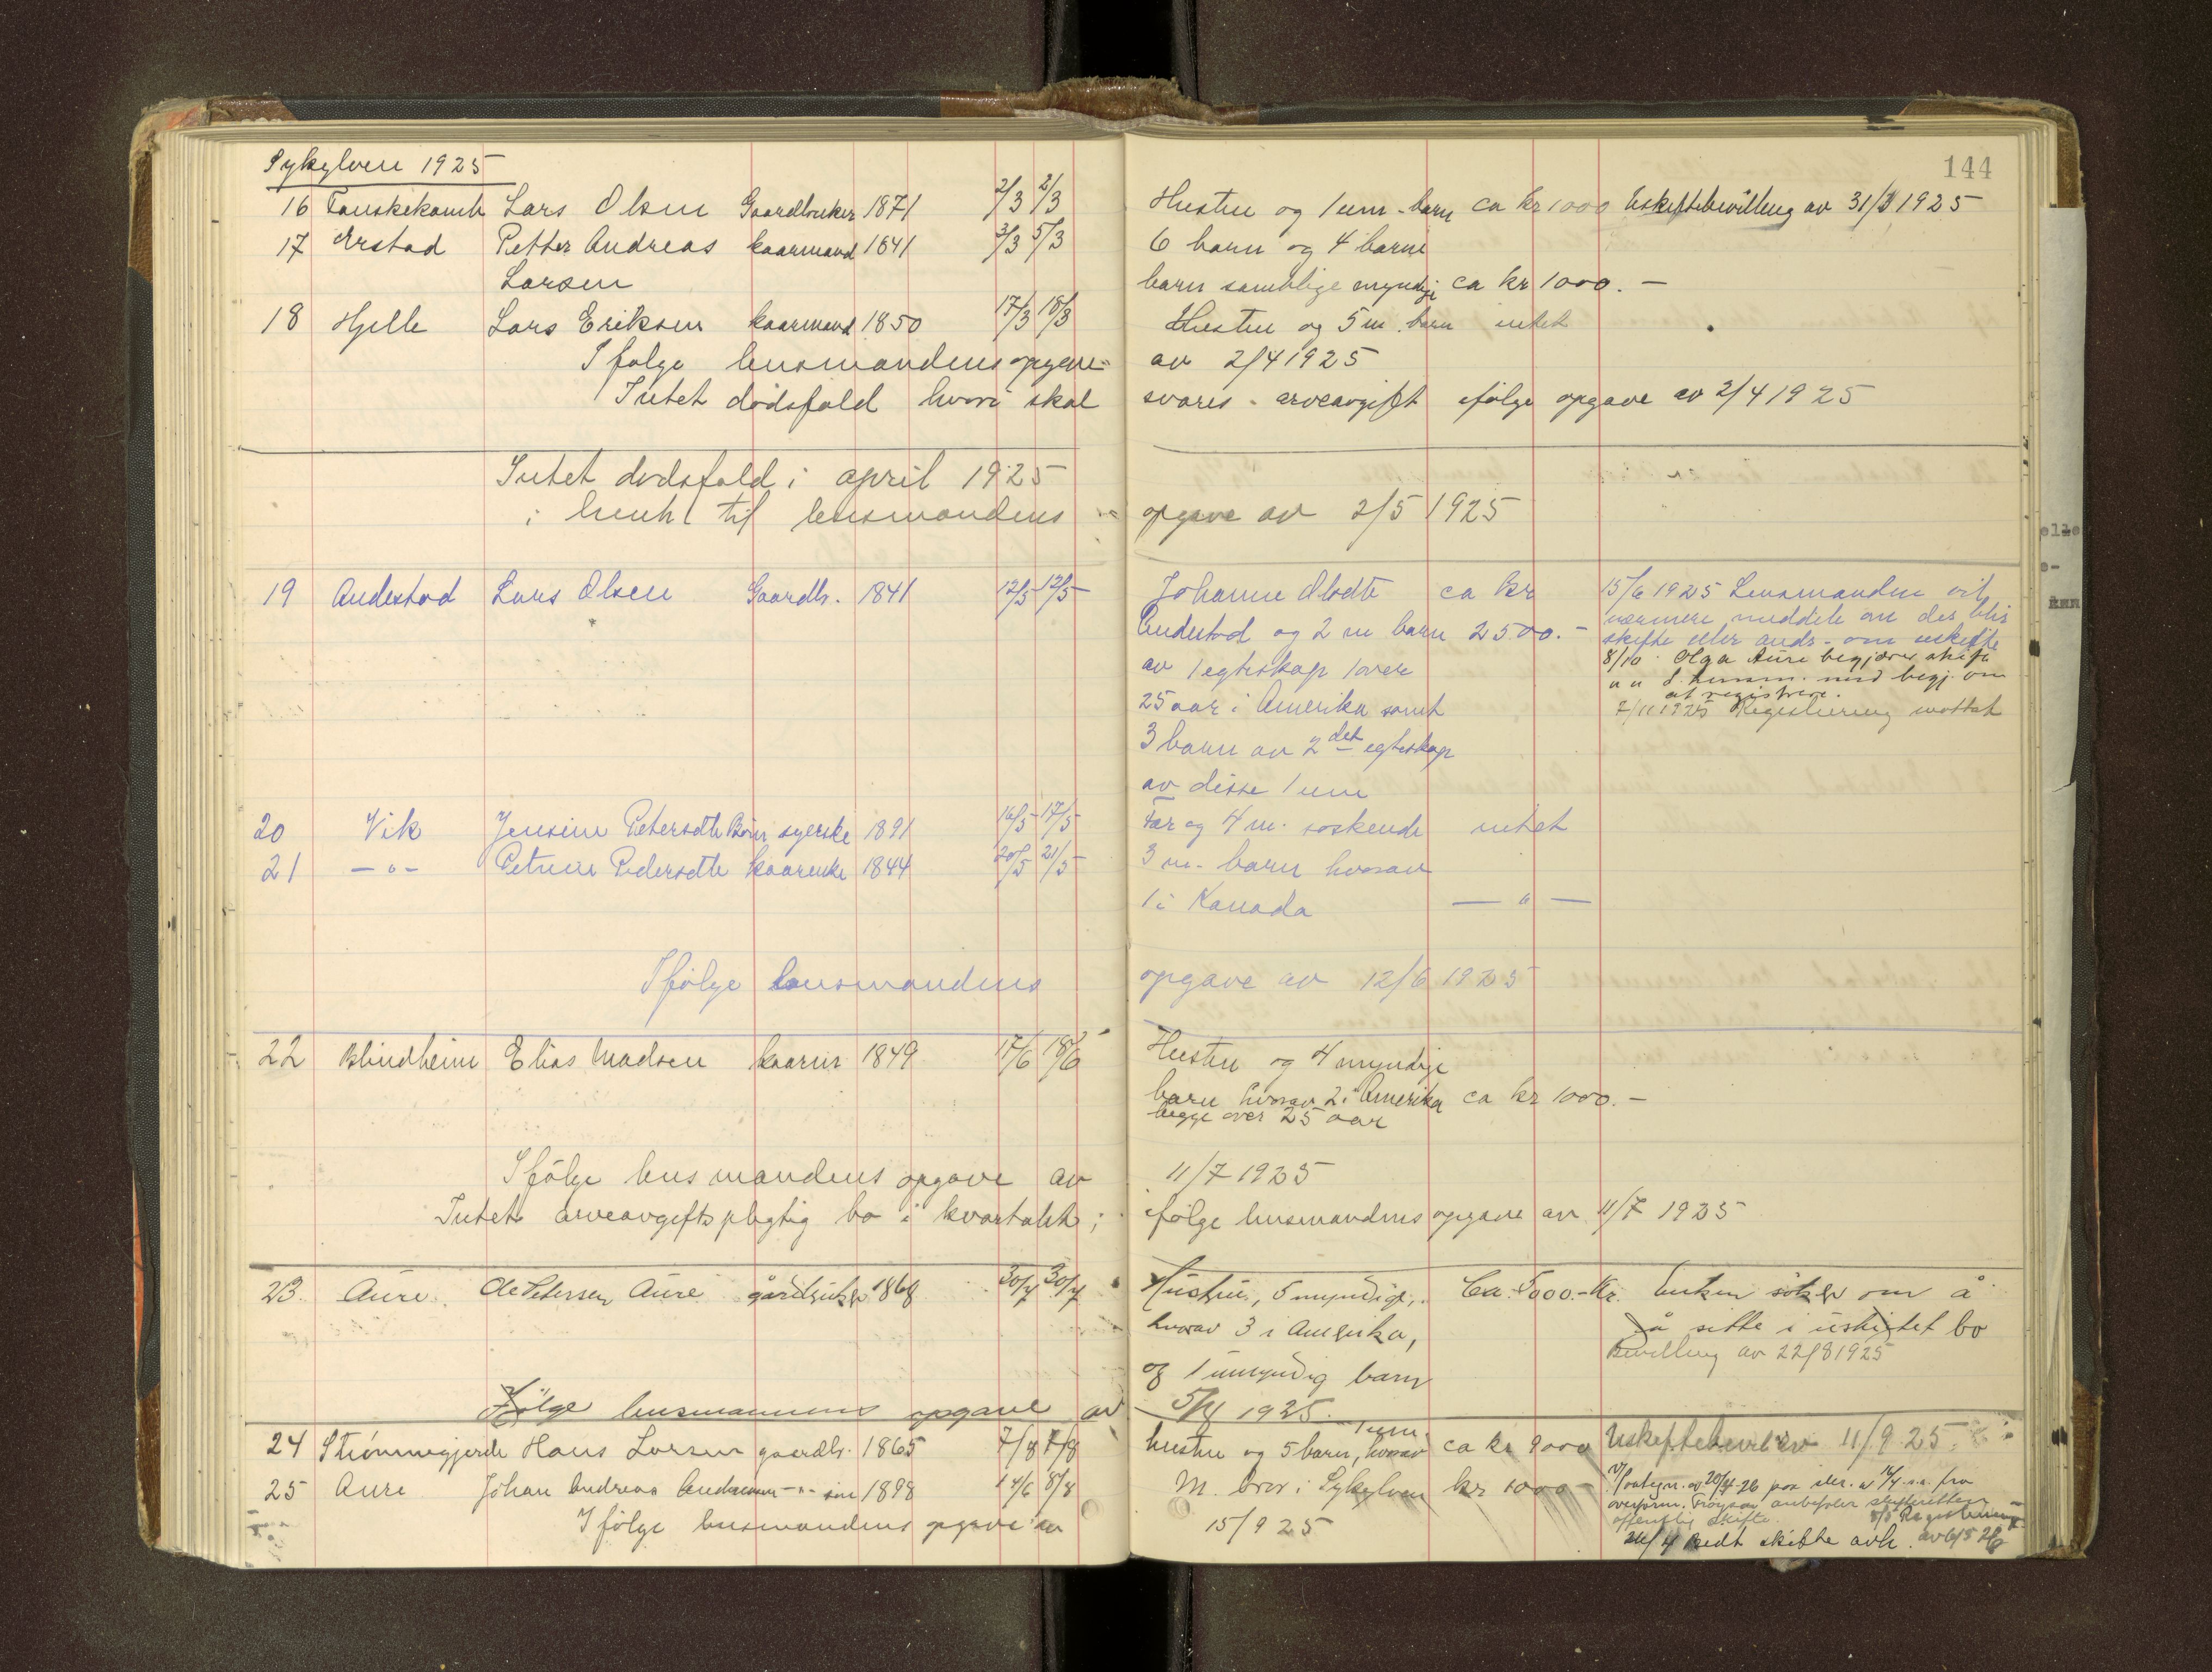 144
Sykylven 1925
16 Tauskekamb Lars Olsen Gaardbruker 1871 2/3 2/3 Hustru og 1 um. barn ca kr 1000 Uskiftebevilling av 31/3 1925
17 Erstad Petter Andreas kaarmand 1841 3/3 5/3 6 barn og 4 barne
Larsen barn samtlige myndige ca kr 1000.-
18 Hjelle Lars Eriksen kaarmand 1850 17/3 18/3 Hustru og 5 m. barn intet
Ifølge lensmandens opgave av 2/4 1925
Intet dødsfald hvori skal svares arveavgift ifølge opgave av 2/4 1925
Intet dødsfald i april 1925
i henh. til lensmandens opgave av 2/5 1925
19 Andestad Lars Olsen Gaardbr. 1841 12/5 12/5 Johanne Olsdtr ca kr 15/6 1925 Lensmanden vil
Andestad og 2 m barn 2500.- nærmere meddele om det blir
skifte eller ands. om uskifte
av 1 egteskap 1 over 8/10 Olga Aure begjærer skifte
" " d. lensm. med begj. om
at registrere.
25 aar i Amerika samt 7/11 1925 Registrering mottat
3 barn av 2det egteskap
av disse 1 um
20 Vik Jensine Petersdtr syerske 1891 16/5 17/5 Far og 4 m. søskende intet
21 - " - Petrine Pedersdtr kaarenke 1844 20/5 21/5 3 m. barn hvorav
1 i Kanada - " -
Ifølge lensmandens opgave av 12/6 1925
22 Blindheim Elias Madsen kaarm 1849 17/6 18/6 Hustru og 4 myndige
barn hvorav 2 i Amerika ca kr 1000.-
begge over 25 aar
Ifølge lensmandens opgave av 11/7 1925
Intet arveavgiftspligtig bo i kvartalet; ifølge lensmandens opgave av 11/7 1925
23. Aure. Ole Petersen Aure gårdbruker 1868 30/7 30/7 Hustru, 5 myndige, Ca. 5000.- Kr. Enken søker om å
hvorav 3 i Amerika, å sitte i uskiftet bo
og 1 umyndig barn Bevilling av 22/8 1925
Ifølge lensmannens opgave av 5/8 1925.
24 Strømmegjerde Hans Larsen gaardbr. 1865 7/8 7/8 hustru og 5 barn, hvorav 1 um. ca kr 9000 Uskiftebevil av 11/9 25
25 Aure Johan Andreas Andreassen - " - søn 1898 14/6 8/8 M. bror i Sykylven kr 1000 - Paategn. av 20/4-26 paa skr. av 16/4 s.a. fra
overform. Frøysa anbefaler skifteretten
offentlig skifte. 8/5 Registrering
Ifølge lensmandens opgave av 15/9 25 24/4 Bedt skifte avh. av 6/5 26